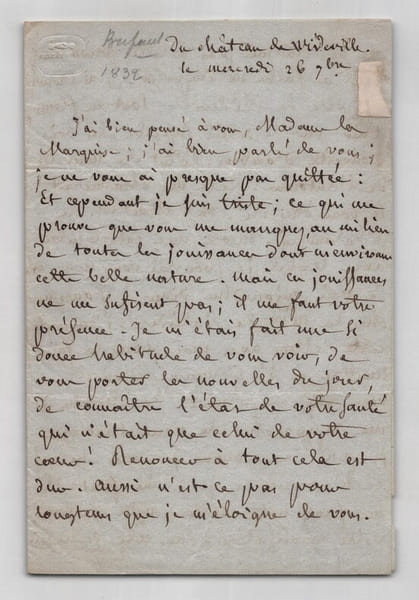 Brifaut
1832
Du château de Wideville.
le mercredi 26 7bre
J'ai bien pensé à vous, Madame la
Marquise; j'ai bien parlé de vous;
je ne vous ai presque pas quittée:
Et cependant je suis triste; ce qui me
prouve que vous me manquez, au milieu
de toutes les jouissances dont m'environne
cette belle nature. mais ces jouissances
ne me sufisent pas; il me faut votre
présence. Je m'étais fait une si
douce habitude de vous voir, de
vous porter les nouvelles du jour,
de connaître l'état de votre santé
qui n'était que celui de votre
coeur! Renoncer à tout cela est
dur. aussi n'est ce pas pour
longtems que je m'éloigne de vous.